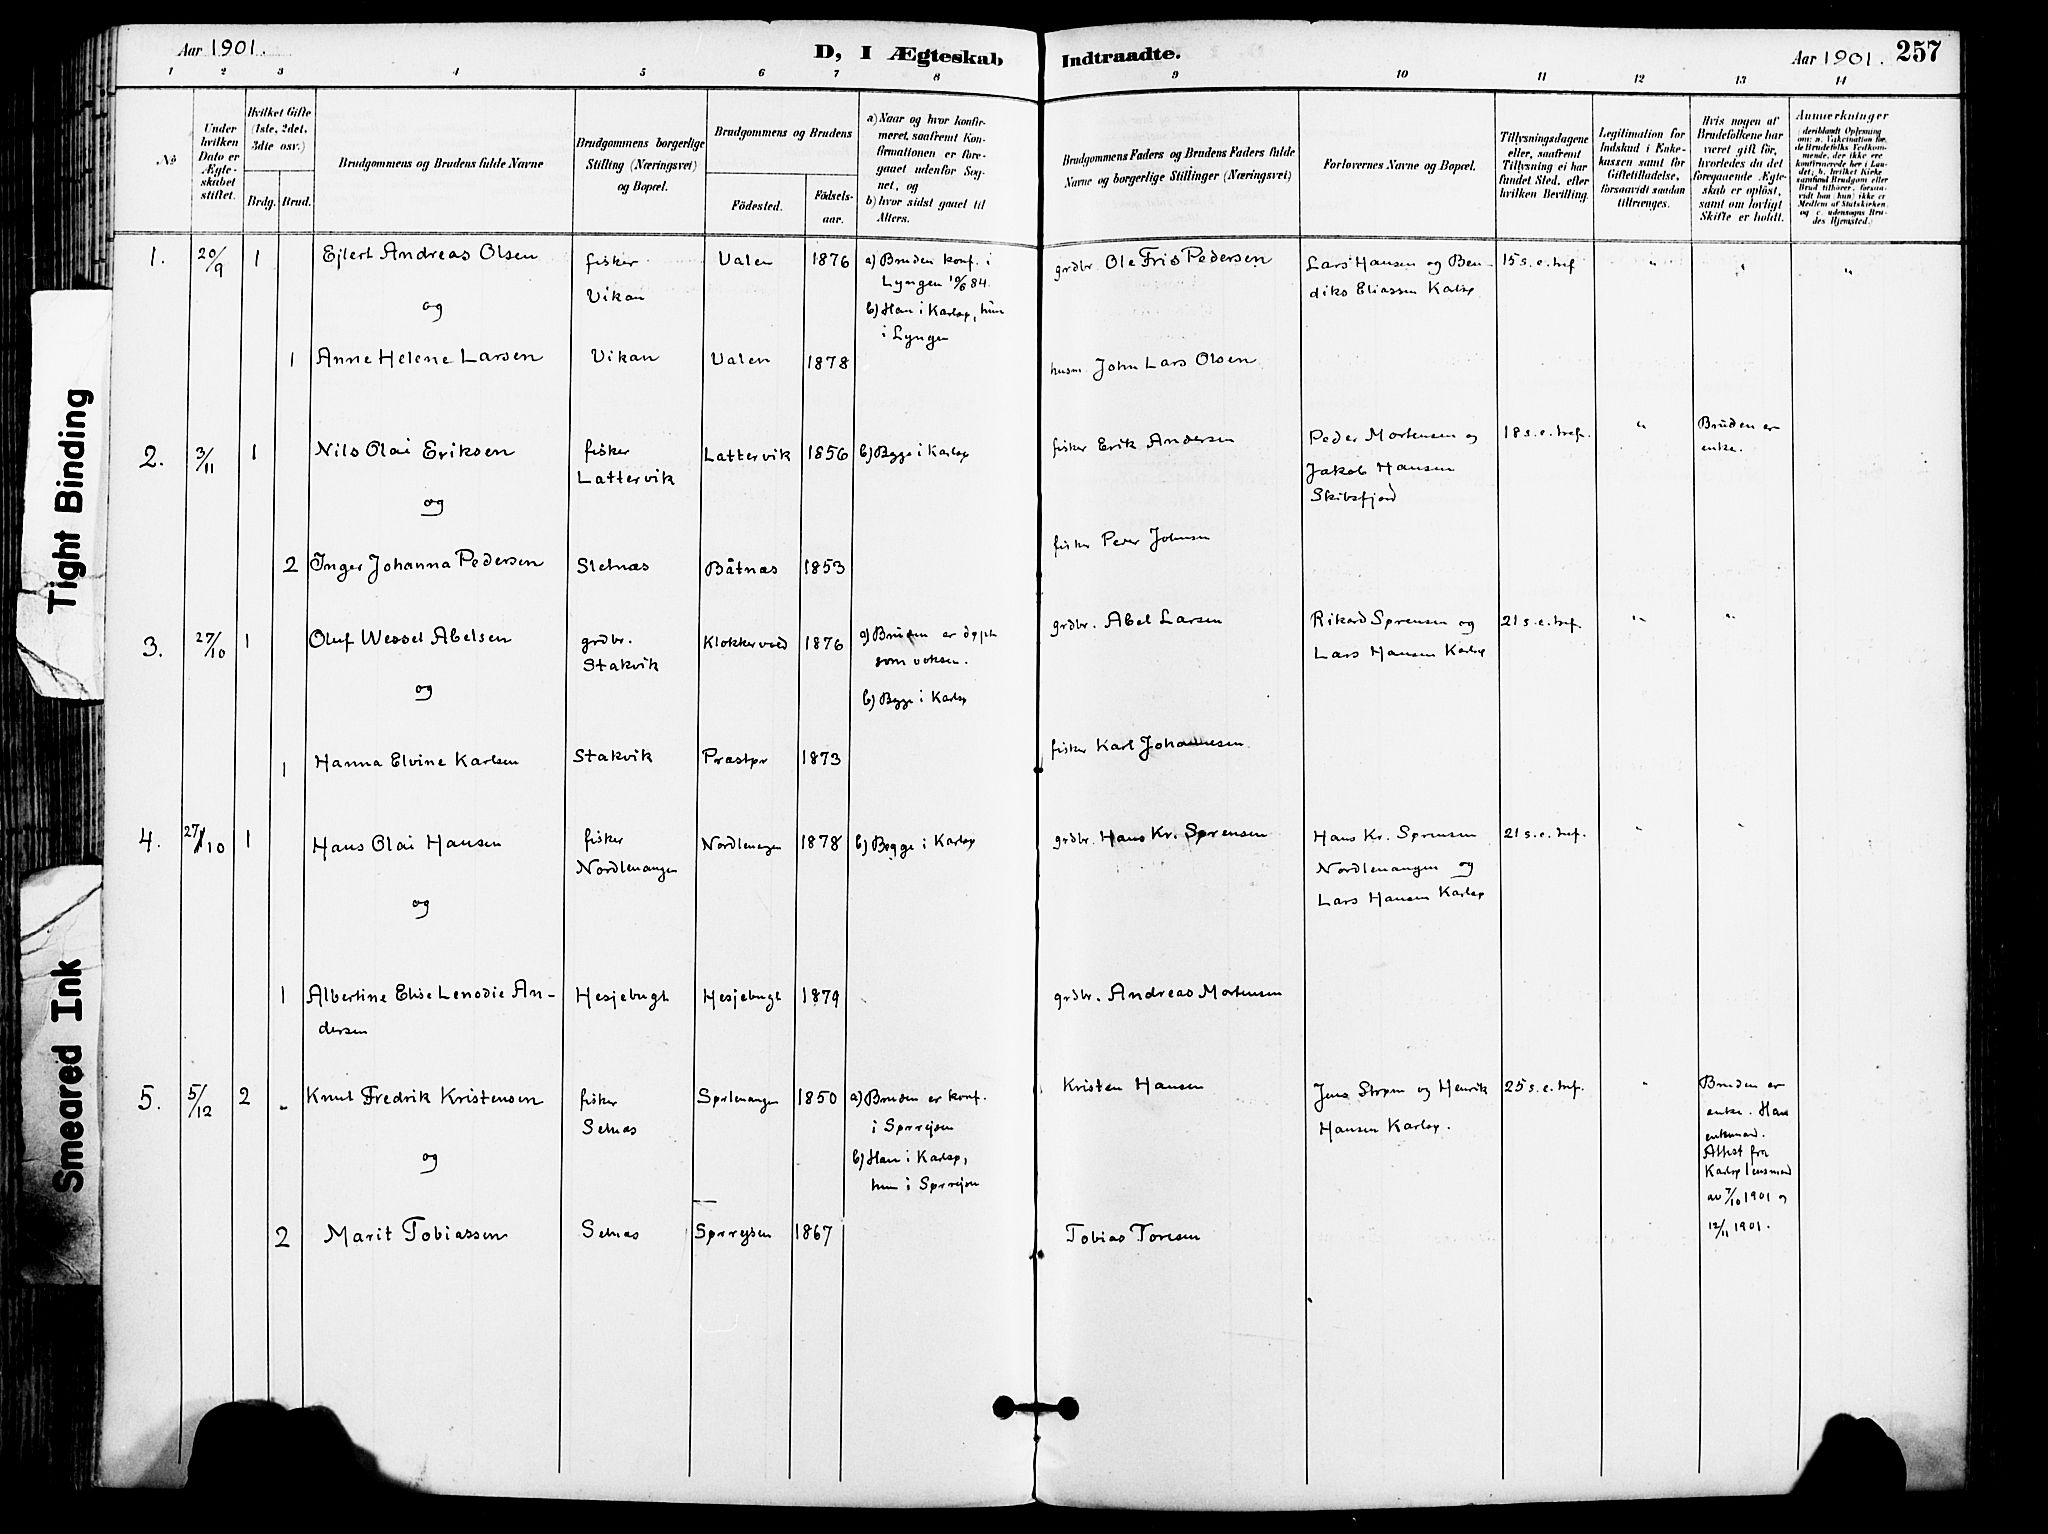 Aar 1901.
D, I Ægteskab Indtraadte.
Aar 1901. 257
1 2 3 4 5 6 7 8 9 10 11 12 13 14
No
Under hvilken Dato er Ægteskabet stiftet.
Hvilket Gifte (1ste, 2det, 3die osv.)
Brdg. Brud.
Brudgommens og Brudens fulde Navne
Brudgommens borgerlige Stilling (Næringsvei) og Bopæl.
Brudgommens og Brudens
Fødested. Fødselsaar.
a) Naar og hvor konfirmeret, saafremt Konfirmationen er foregaaet udenfor Sognet, og
b) hvor sidst gaaet til Alters.
Brudgommens Faders og Brudens Faders fulde Navne og borgerlige Stillinger (Næringsvei)
Forlovernes Navne og Bopæl.
Tillysningsdagene eller, saafremt Tillysning ei har fundet Sted, efter hvilken Bevilling.
Legitimation for Indskud i Enkekassen samt for Giftetilladelse, forsaavidt saadan tiltrænges.
Hvis nogen af Brudefolkene har været gift før, hvorledes da det foregaaende Ægteskab er opløst, samt om lovligt Skifte er holdt.
Anmerkninger
1. 20/9 1 Ejlert Andreas Olsen fisker Valen 1876 a) Bruden konf. i grdbr. Ole Fris Pedersen Lars Hansen og Ben- 15 s. e. tref " " "
Vikan Lyngen 10/6 84. diks Eliassen Karlsø
og b) Han i Karlsø, hun
i Lyngen
1 Anne Helene Larsen Vikan Valen 1878 husm John Lars Olsen
2. 3/11 1 Nils Olai Eriksen fisker Lattervik 1856 b) Begge i Karlsø fisker Erik Andersen Peder Mortensen og 18 s. e. tref. " Bruden er
Lattervik Jakob Hansen enke.
og Skibsfjord
2 Inger Johanna Pedersen Sletnæs Båtnæs 1853 fisker Peder Johnsen
3. 27/10 1 Oluf Wessel Abelsen grdbr. Klokkervold 1876 a) Bruden er døpt grdbr. Abel Larsen Rikard Sørensen og 21 s. e. tref. " "
Stakvik som voksen. Lars Hansen Karlsø
og b) Begge i Karlsø
1 Hanna Elvine Karlsen Stakvik Præstør 1873 fisker Karl Johannesen
4. 27/10 1 Hans Olai Hansen fisker Nordlenangen 1878 b) Begge i Karlsø grdbr. Hans Kr. Sørensen Hans Kr. Sørensen 21 s. e. tref. " "
Nordlenangen Nordlenangen og
og Lars Hansen Karlsø
1 Albertine Elise Lenodie An- Hesjebugt Hesjebugt 1879 grdbr. Andreas Mortensen
dersen
5. 5/12 2 " Knut Fredrik Kristensen fisker Sørlenangen 1850 a) Bruden er konf. Kristen Hansen Jens Strøm og Henrik 25 s. e. tref. " Bruden er
Selnæs i Sørreisen Hansen Karlsø. enke. Han
og b) Han i Karlsø, enkemand.
hun i Sørreisen Attest fra
Karlsø lensmand
av 7/10 1901 og
12/11 1901.
2 Marit Tobiassen Selnæs Sørreisen 1867 Tobias Toresen
Tight Binding
Smeared Ink